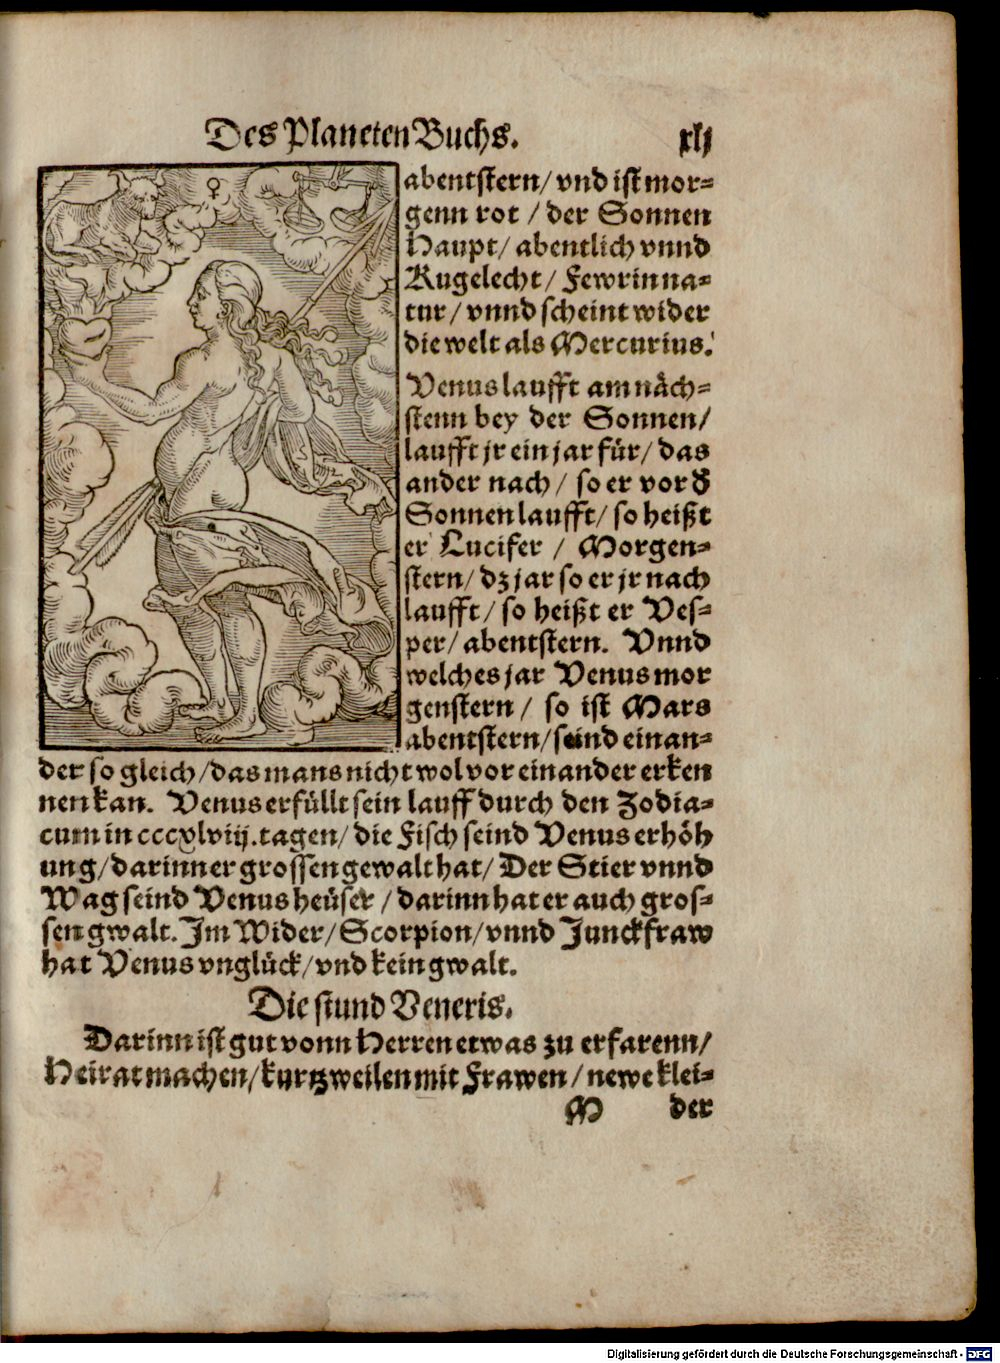 Des Planeten Buchs. xlj
♀
abentstern/ vnd ist mor-
genn rot / der Sonnen
Haupt/ abentlich vnnd
Kugelecht/ Fewrin na-
tur/ vnnd scheint wider
die welt als Mercurius.
Venus laufft am näch-
stenn bey der Sonnen/
laufft jr ein jar für/ das
ander nach/ so er vor d̕
Sonnen laufft/ so heißt
er Lucifer / Morgen-
stern/ dz jar so er jr nach
laufft/ so heißt er Ves-
per/ abentstern. Vnnd
welches jar Venus mor
genstern/ so ist Mars
abentstern/ seind einan-
der so gleich/ das mans nicht wol vor einander erken
nen kan. Venus erfüllt sein lauff durch den Zodia-
cum in cccxlviij. tagen/ die Fisch seind Venus erhöh
ung/ darinn er grossen gewalt hat/ Der Stier vnnd
Wag seind Venus heüser / darinn hat er auch gros-
sen gwalt. Im Wider/ Scorpion/ vnnd Junckfraw
hat Venus vnglück/ vnd kein gwalt.
Die stund Veneris.
Darinn ist gut vonn Herren etwas zu erfarenn/
Heirat machen/ kurtzweilen mit Frawen/ newe klei-
M der
Digitalisierung gefördert durch die Deutsche Forschungsgemeinschaft - DFG